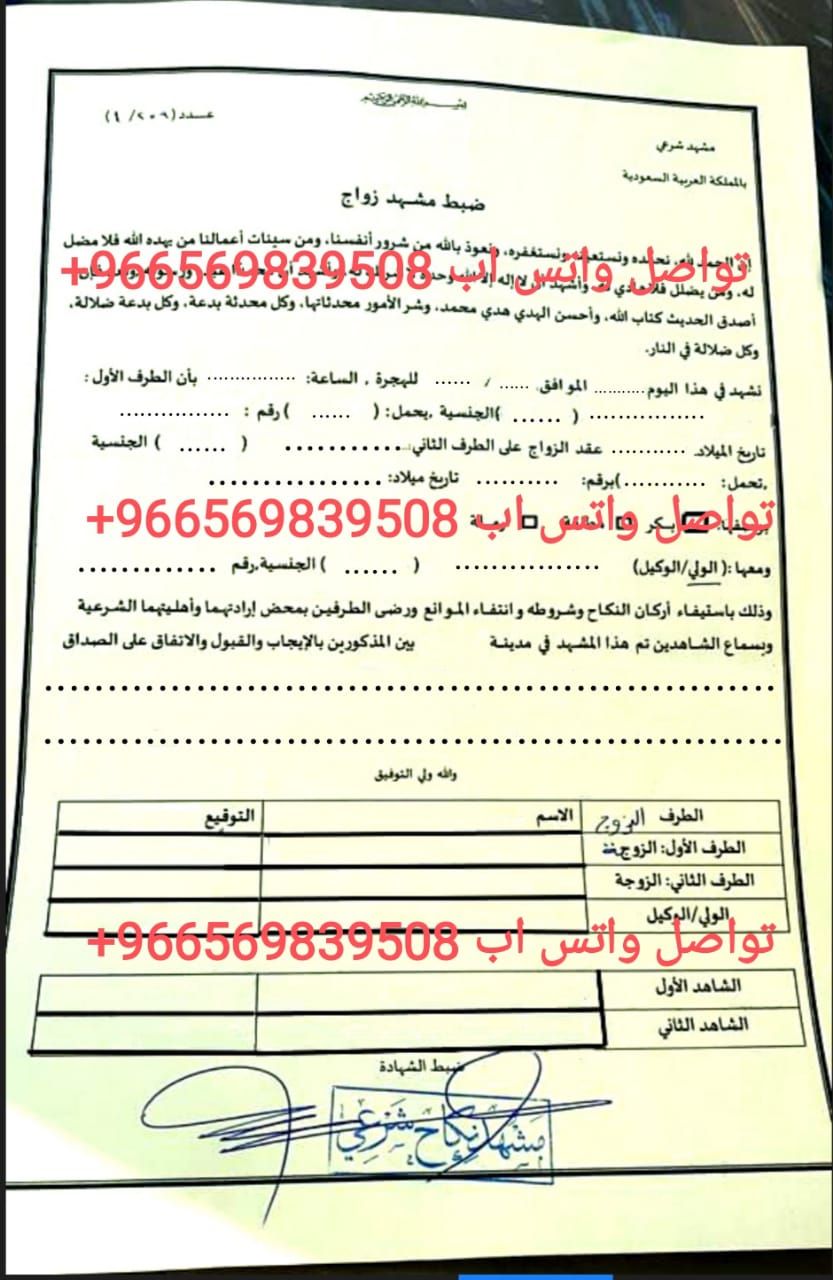 بسم الله الرحمن الرحيم
عدد(٢٠٦/ ٤)
مشهد شرعي
بالمملكة العربية السعودية
ضبط مشهد زواج
إن الحمد لله، نحمده ونستعينه ونستغفره، ونعوذ بالله من شرور أنفسنا، ومن سيئات أعمالنا من يهده الله فلا مضل
تواصل واتس اب 966569839508+
له، ومن يضلل فلا هادي له وأشهد أن لا إله إلا الله وحده
أصدق الحديث كتاب الله، وأحسن الهدي هدي محمد، وشر الأمور محدثاتها، وكل محدثة بدعة، وكل بدعة ضلالة،
وكل ضلالة في النار.
نشهد في هذا اليوم........... الموافق ...... / ...... للهجرة , الساعة: ................ بأن الطرف الأول:
.................... ( ...... )الجنسية ,يحمل: ( ...... )رقم : ....................
تاريخ الميلاد ............. عقد الزواج على الطرف الثاني: .................... ( ...... ) الجنسية
,تحمل: ............)برقم: ............... تاريخ ميلاد: ..............................
بكر
تواصل واتس اب 966569839508+
ومعها :( الولي/الوكيل) .................... ( ...... ) الجنسية,رقم ....................
وذلك باستيفاء أركان النكاح وشروطه و انتفاء الموانع ورضى الطرفين بمحض إرادتهما وأهليتهما الشرعية
وبسماع الشاهدين تم هذا المشهد في مدينة بين المذكورين بالإيجاب والقبول والاتفاق على الصداق
والله ولي التوفيق
الطرف الزوج الاسم التوقيع
الطرف الأول: الزوج
الطرف الثاني: الزوجة
الولي/الوكيل
تواصل واتس اب 966569839508+
الشاهد الأول
الشاهد الثاني
ضبط الشهادة
مشهد نكاح شرعي